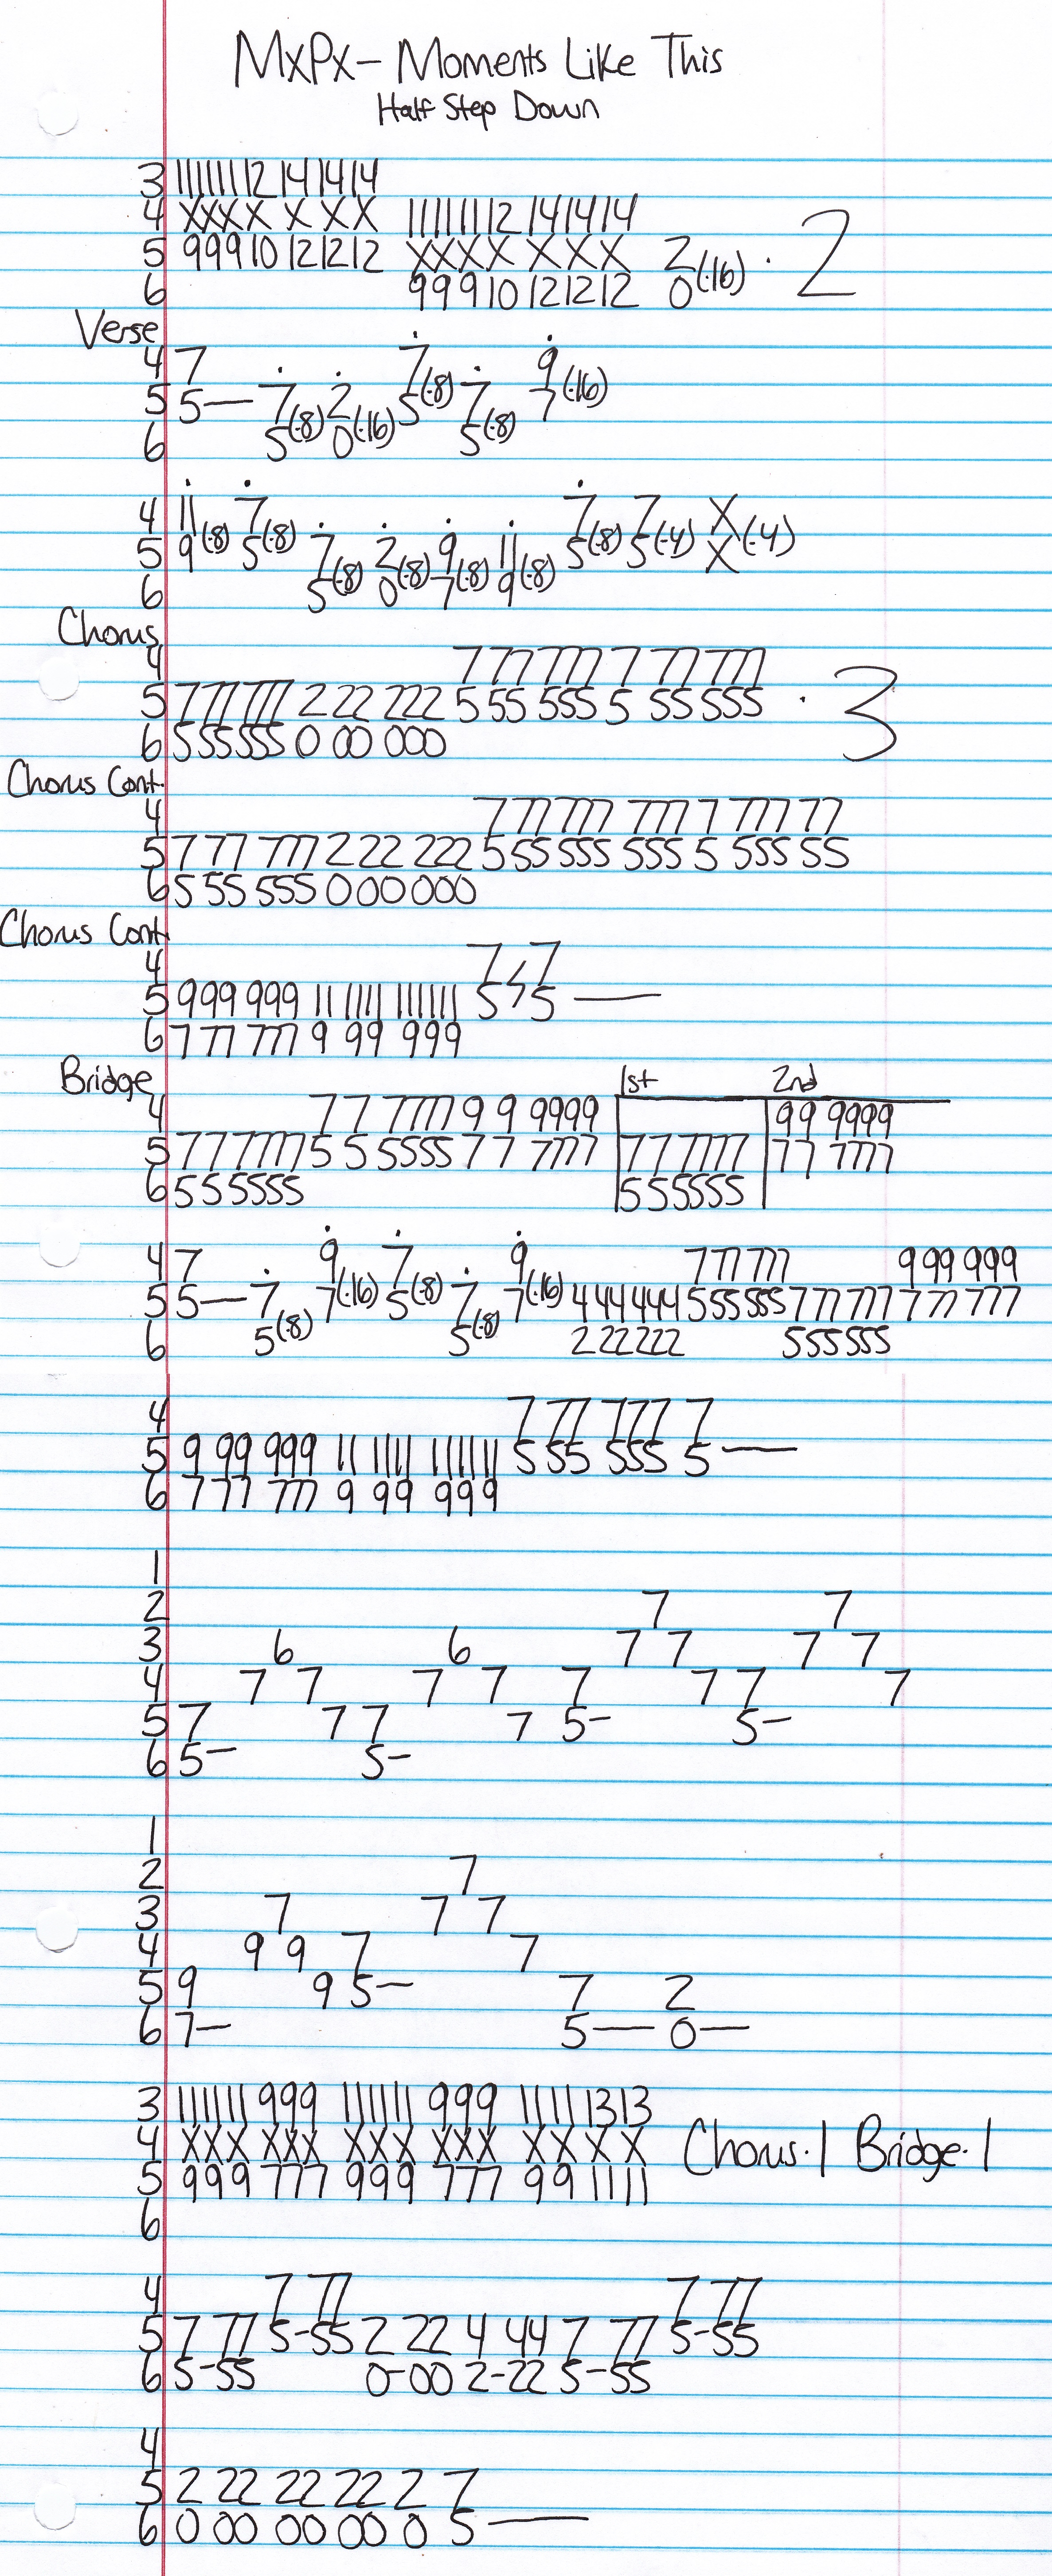 MxPx - Moments Like This
Half Step Down
3 11 11 11 12 14 14 14
4 X X X X X X X 11 11 11 12 14 14 14
5 9 9 9 10 12 12 12 X X X X X X X 2 (·16) · 2
6 9 9 9 10 12 12 12 0
Verse
4 7 7 9
5 5— 7 (·8) 2 (·16) 5 (·8) 7 (·8) 7 (·16)
6 5 0 5
4 11 7 7 7 X
5 9 (·8) 5 (·8) 7 (·8) 2 (·8) 9 (·8) 11 (·8) 5 (·8) 5 (·4) X (·4)
6 5 0 7 9
Chorus
4 7 77 777 7 77 777
5 7 77 777 2 22 222 5 55 555 5 55 555 · 3
6 555555 0 00 000
Chorus Cont.
4 7 77 777 777 7 777 77
5 7 77 777 2 22 222 5 55 555 555 5 555 55
6 5 55 555 000000
Chorus Cont.
4 7 / 7
5 999 999 11 11 11 11 11 11 5 / 5 —
6 7 77 777 9 99 999
Bridge 1st 2nd
4 7 7 7777 9 9 9999 99 9999
5 777777 5 5 5555 7 7 7777 777777 77 7777
6 555555 555555
4 7 9 7 9 777 777 999 999
5 5— 7 7 (·16) 5 (·8) 7 7 (·16) 444444 555555 777 777 777 777
6 5 (·8) 5 (·8) 222222 555555
4 7 77 777 7
5 9 99 999 11 11 11 11 11 11 5 55 555 5 —
6 7 77 777 9 99 999
1
2 7 7
3 6 6 7 7 7 7
4 7 7 7 7 7 7 7 7
5 7 7 7 7 5- 5-
6 5- 5-
1
2 7
3 7 7 7
4 9 9 7 7
5 9 9 5- 7 2
6 7- 5— 0—
3 11 11 11 9 9 9 11 11 11 9 9 9 11 11 13 13
4 X X X X X X X X X X X X X X X X Chorus·1 Bridge·1
5 9 9 9 7 7 7 9 9 9 7 7 7 9 9 11 11
6
4 7 77 7 77
5 7 77 5-55 2 22 4 44 7 77 5-55
6 5-55 0-00 2-22 5-55
4
5 2 22 22 22 2 7
6 0 00 00 00 0 5 —